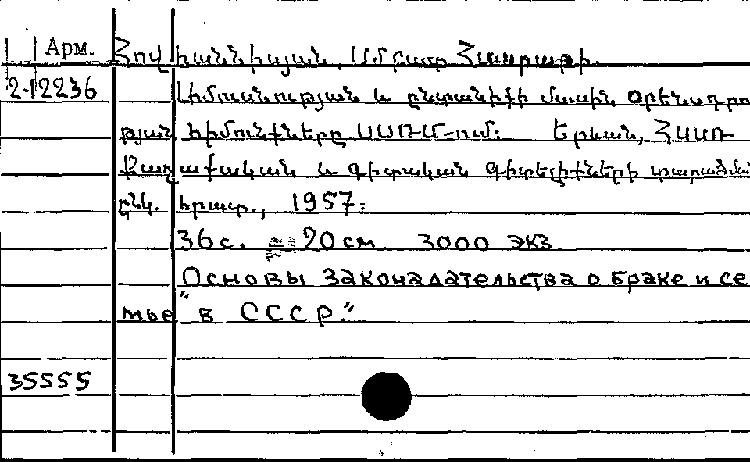 Арм. Հովհաննիսյան, Սմբատ Հայրապ.
2-12236 Ամուսնության և ընտանիքի մասին օրենսդրու
թյան հիմունքները ՍՍՌՄ-ում: Երևան, ՀՍՍՌ
Քաղաքական և գիտական գիտելիքների տարածման
ընկ. հրատ., 1957:
36 с. 20 см 3000 экз
„Основы законадательства о браке и се
мье в СССР."
35555